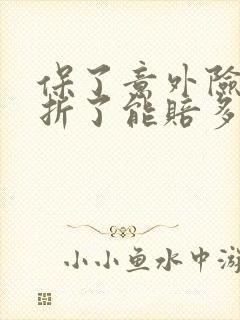 保了意外险
折了能赔多
小小鱼水中游